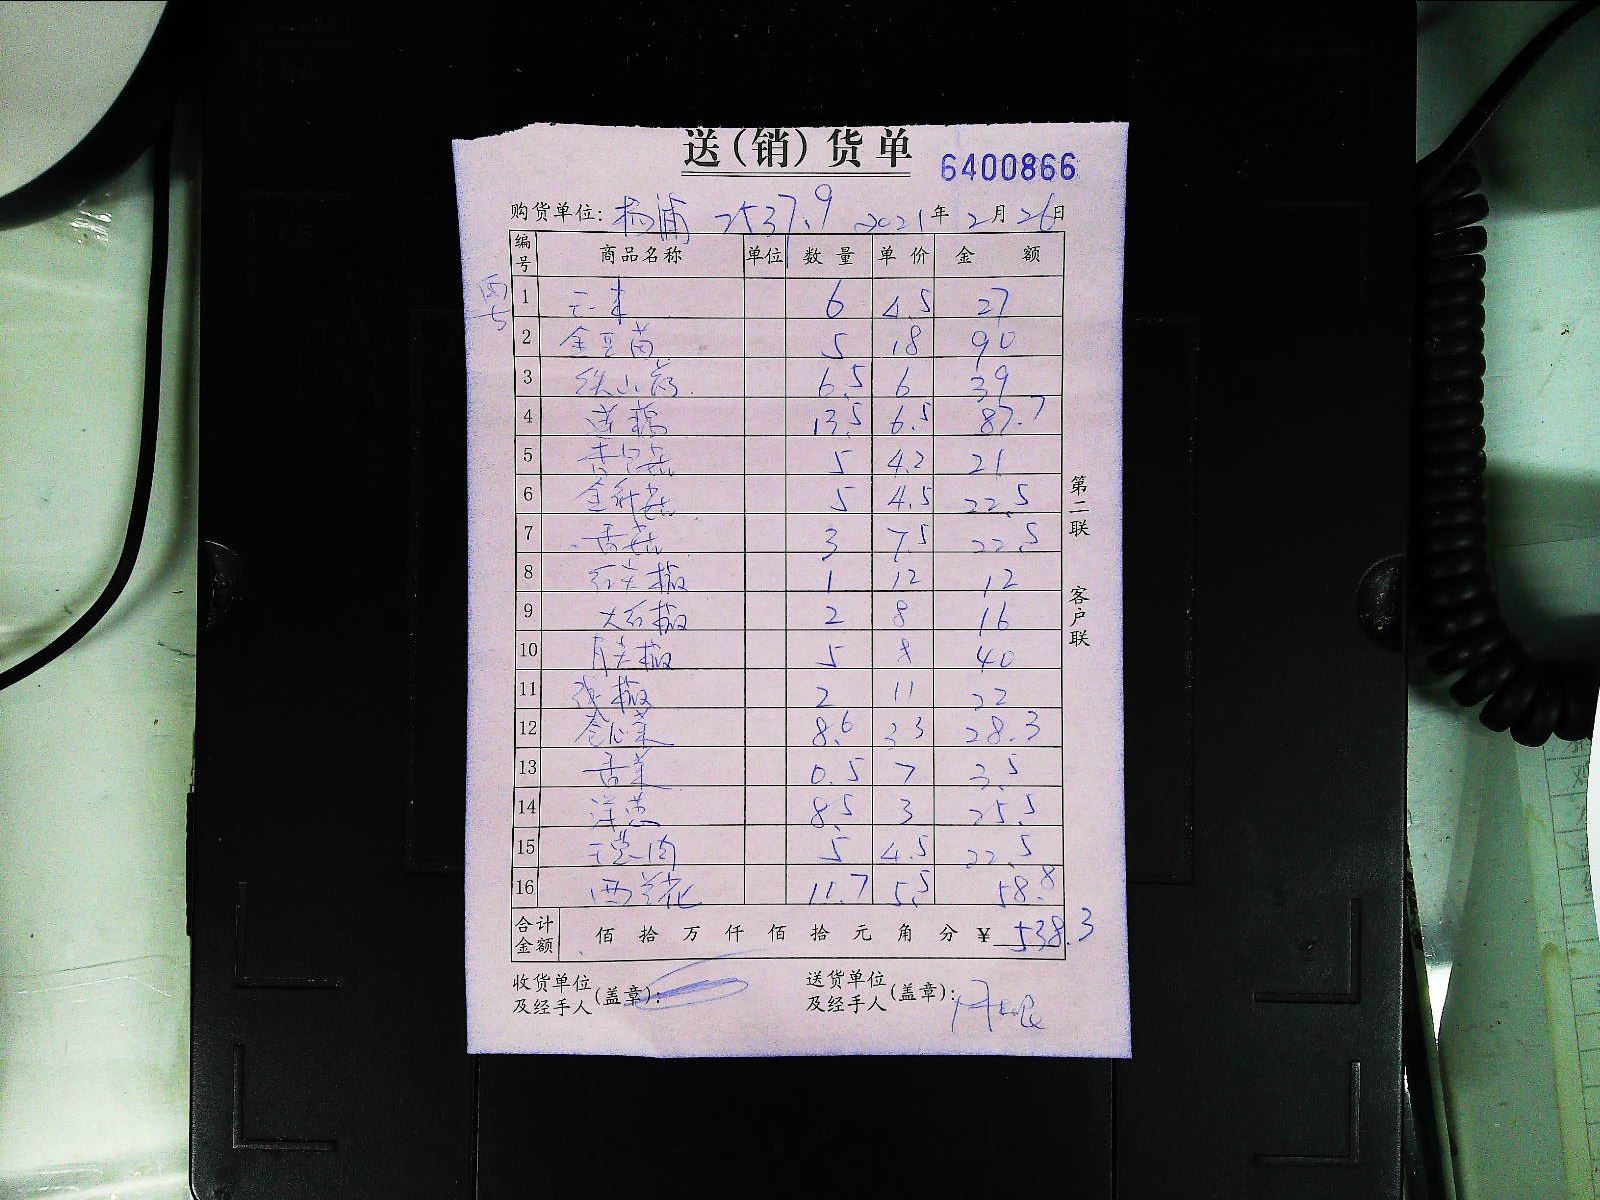 送(销)货单
6400866
购货单位: 杨浦 2537.9 2021年2月26日
编号 商品名称 单位 数量 单价 金额
1 6 4.5 27
2 金豆苗 5 18 90
3 铁山药 6.5 6 39
4 莲藕 13.5 6.5 87.7
5 杏鲍菇 5 4.2 21
6 金针菇 5 4.5 22.5
7 香菇 3 7.5 22.5
8 红尖椒 1 12 12
9 大石椒 2 8 16
10 青尖椒 5 8 40
11 线椒 2 11 22
12 包心菜 8.6 33 28.3
13 香菜 0.5 7 3.5
14 洋葱 8.5 3 25.5
15 5 4.5 22.5
16 西兰花 11.7 5.5 58.8
合计金额 佰拾万仟佰拾元角分 ¥ 538.3
收货单位及经手人(盖章):
送货单位及经手人(盖章):
第二联 客户联